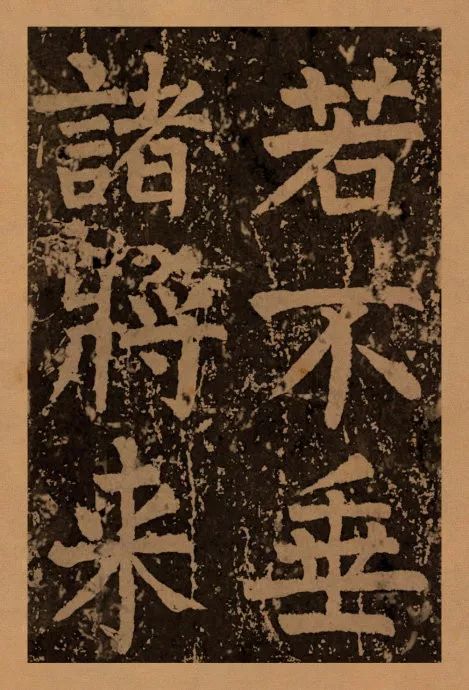 若不垂
諸將来